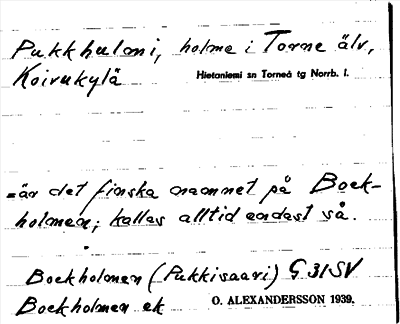 Pukkhulmi, holme i Torne älv,
Koivukylä Hietaniemi sn Torneå tg Norrb. l.
=är det finska namnet på Bock-
holmen; kallas alltid endast så.
Bockholmen (Pukkisaari) G 31 SV
Bockholmen ek O. ALEXANDERSSON 1939.